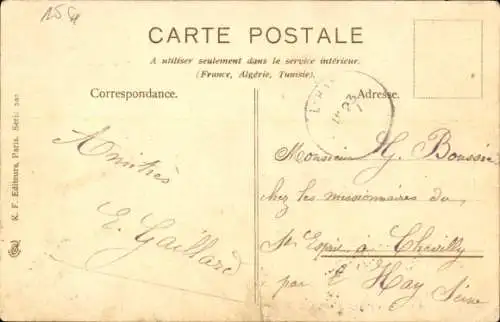 CARTE POSTALE
A utiliser seulement dans le service intérieur.
(France, Algérie, Tunisie).
Correspondance.
Adresse.
K. F. Editeurs, Paris. Serie
Amitiés
E. Gaillard
23
Monsieur G. Boussin
chez les missionnaires du
St Esprit à Chevilly
par l'Hay Seine